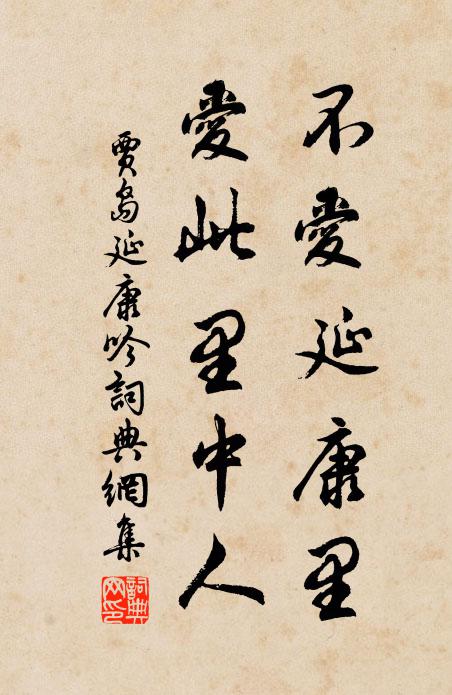 不愛延康里
愛此里中人
賈島延康吟詞典網集
詞典網印